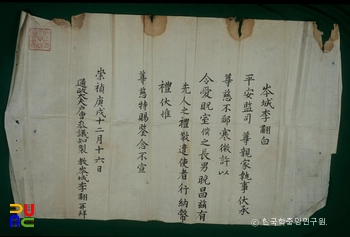 岑城李翻白
平安監司 尊親家執事伏承
尊慈不鄙寒微許以
令愛貺室 之長男晚昌茲有
先人之禮敬遣使者行納幣
禮伏惟
尊慈特賜鑒念不宣
崇禎庚戌十二月十六日
通政大夫 曹參議知製 教岑城李翻再拜
© 한국학중앙연구원